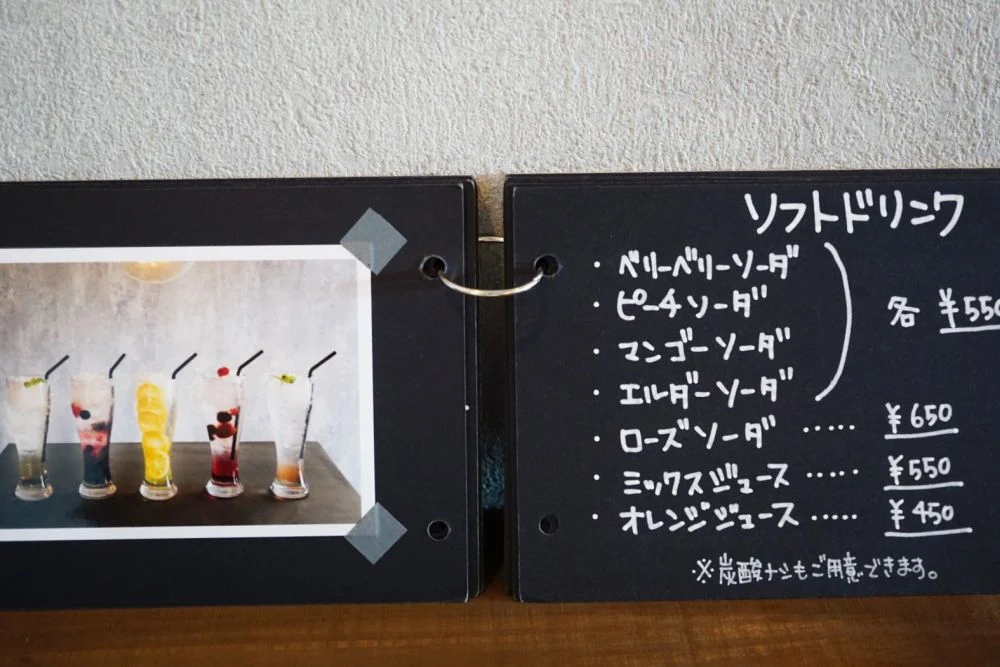 ソフトドリンク
・ベリーベリーソーダ
・ピーチソーダ
・マンゴーソーダ
・エルダーソーダ
各 ¥550
・ローズソーダ ‥‥‥ ¥650
・ミックスジュース ‥‥‥ ¥550
・オレンジジュース ‥‥‥ ¥450
※炭酸ナシもご用意できます。